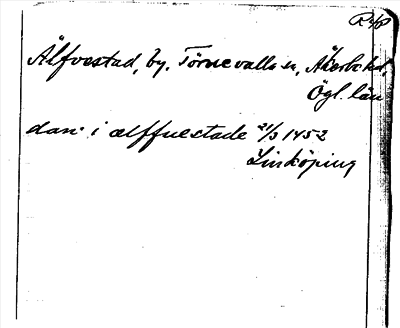 Älfvestad, by. Törnevalla sn, Åkerbo hd.
Ögl. län
dan. i ælffuestade 21/3 1452
Linköping